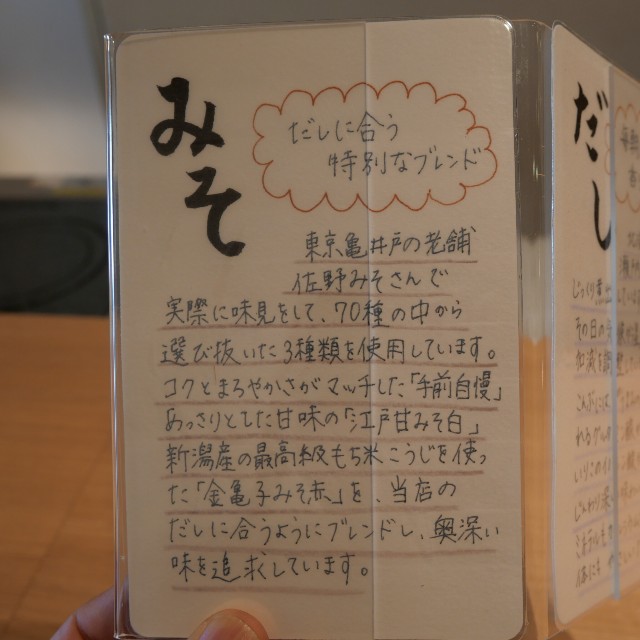 みそ
だしに合う
特別なブレンド
東京亀井戸の老舗
佐野みそさんで
実際に味見をして、70種の中から
選び抜いた3種類を使用しています。
コクとまろやかさがマッチした「手前自慢」
あっさりとした甘味の「江戸甘みそ白」
新潟産の最高級もち米こうじを使っ
た「金亀子みそ赤」を、当店の
だしに合うようにブレンドし、奥深い
味を追求しています。
だし